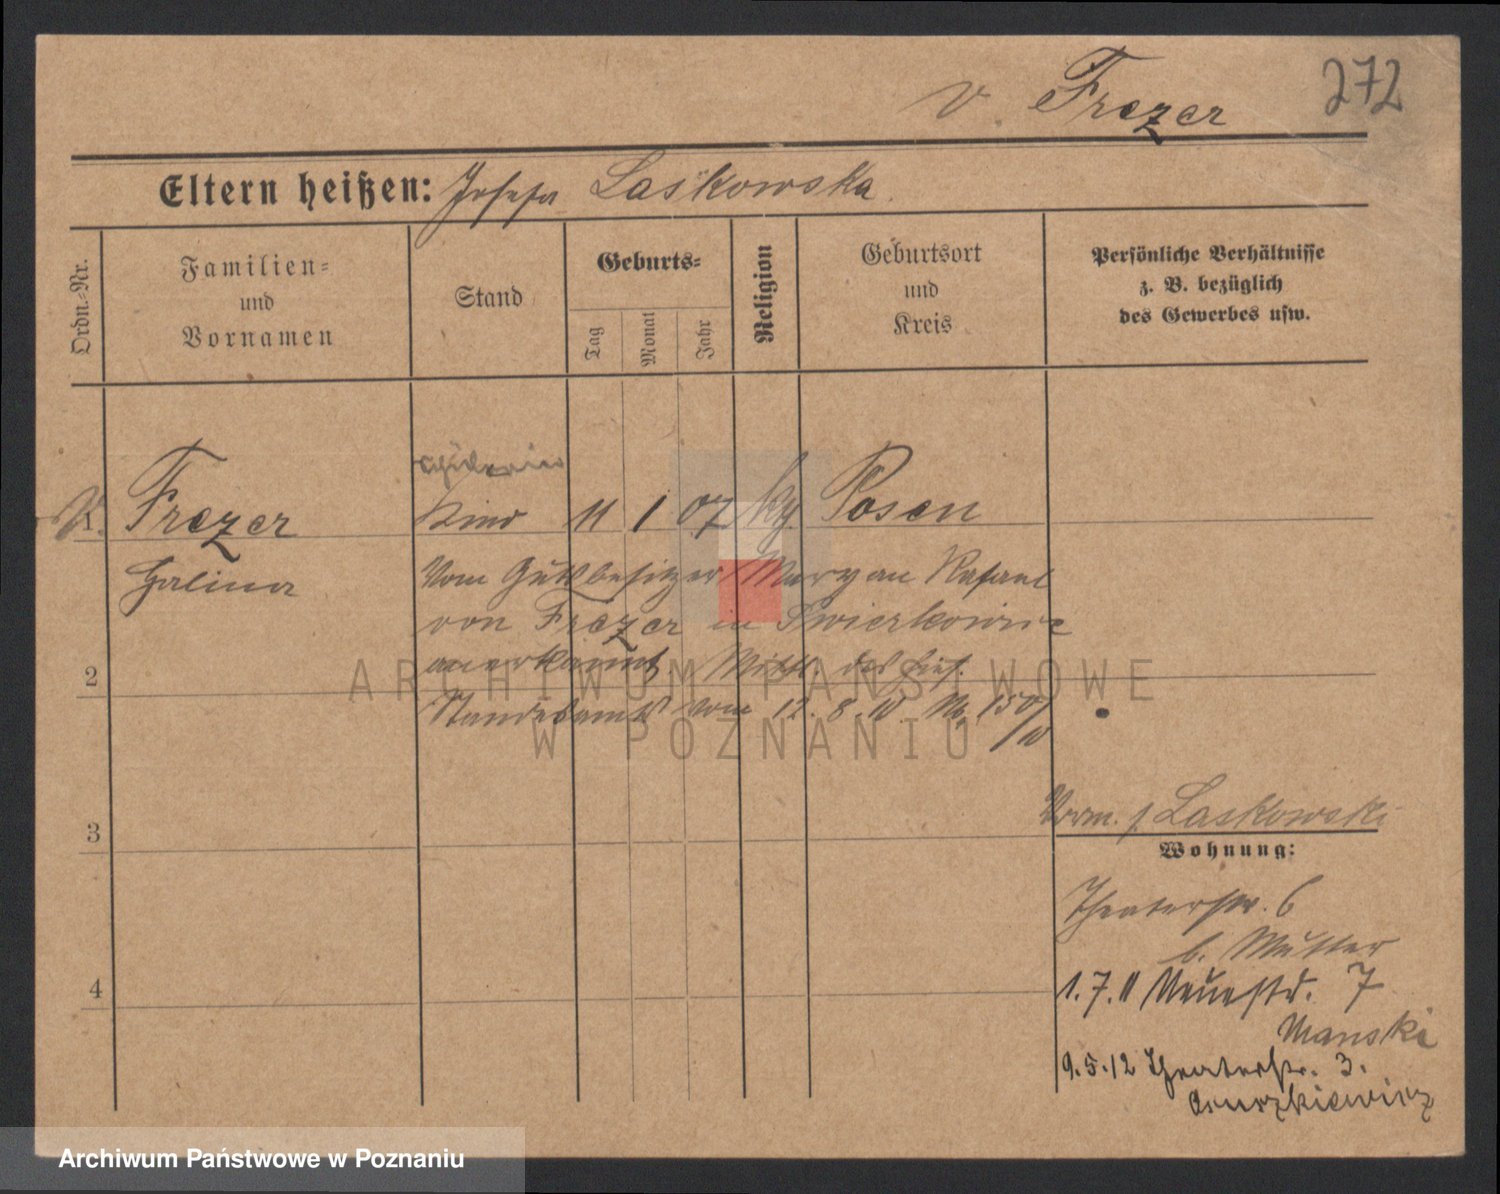 v. Frezer 272
Eltern heißen: Josefa Laskowska
Ordn.-Nr.
Familien-
und
Vornamen
Stand
Geburts-
Tag
Monat
Jahr
Religion
Geburtsort
und
Kreis
Persönliche Verhältnisse
z. B. bezüglich
des Gewerbes usw.
v. 1. Frezer Kind 11 1 07 kg Posen
Halina
Vom Gutsbesitzer Maryan Rafael
von Frezer in Swierkowice
anerkannt Mittl. des hies.
2
Standesamts vom 12. 8. 10 No 150/10
Vorm. J. Laskowski
3
Wohnung:
Theaterstr. 6
b. Mutter
4
1. 7. 11 Neuestr. 7
Manski
9. 5. 12 Theaterstr. 3.
ARCHIWUM PAŃSTWOWE
W POZNANIU
Archiwum Państwowe w Poznaniu